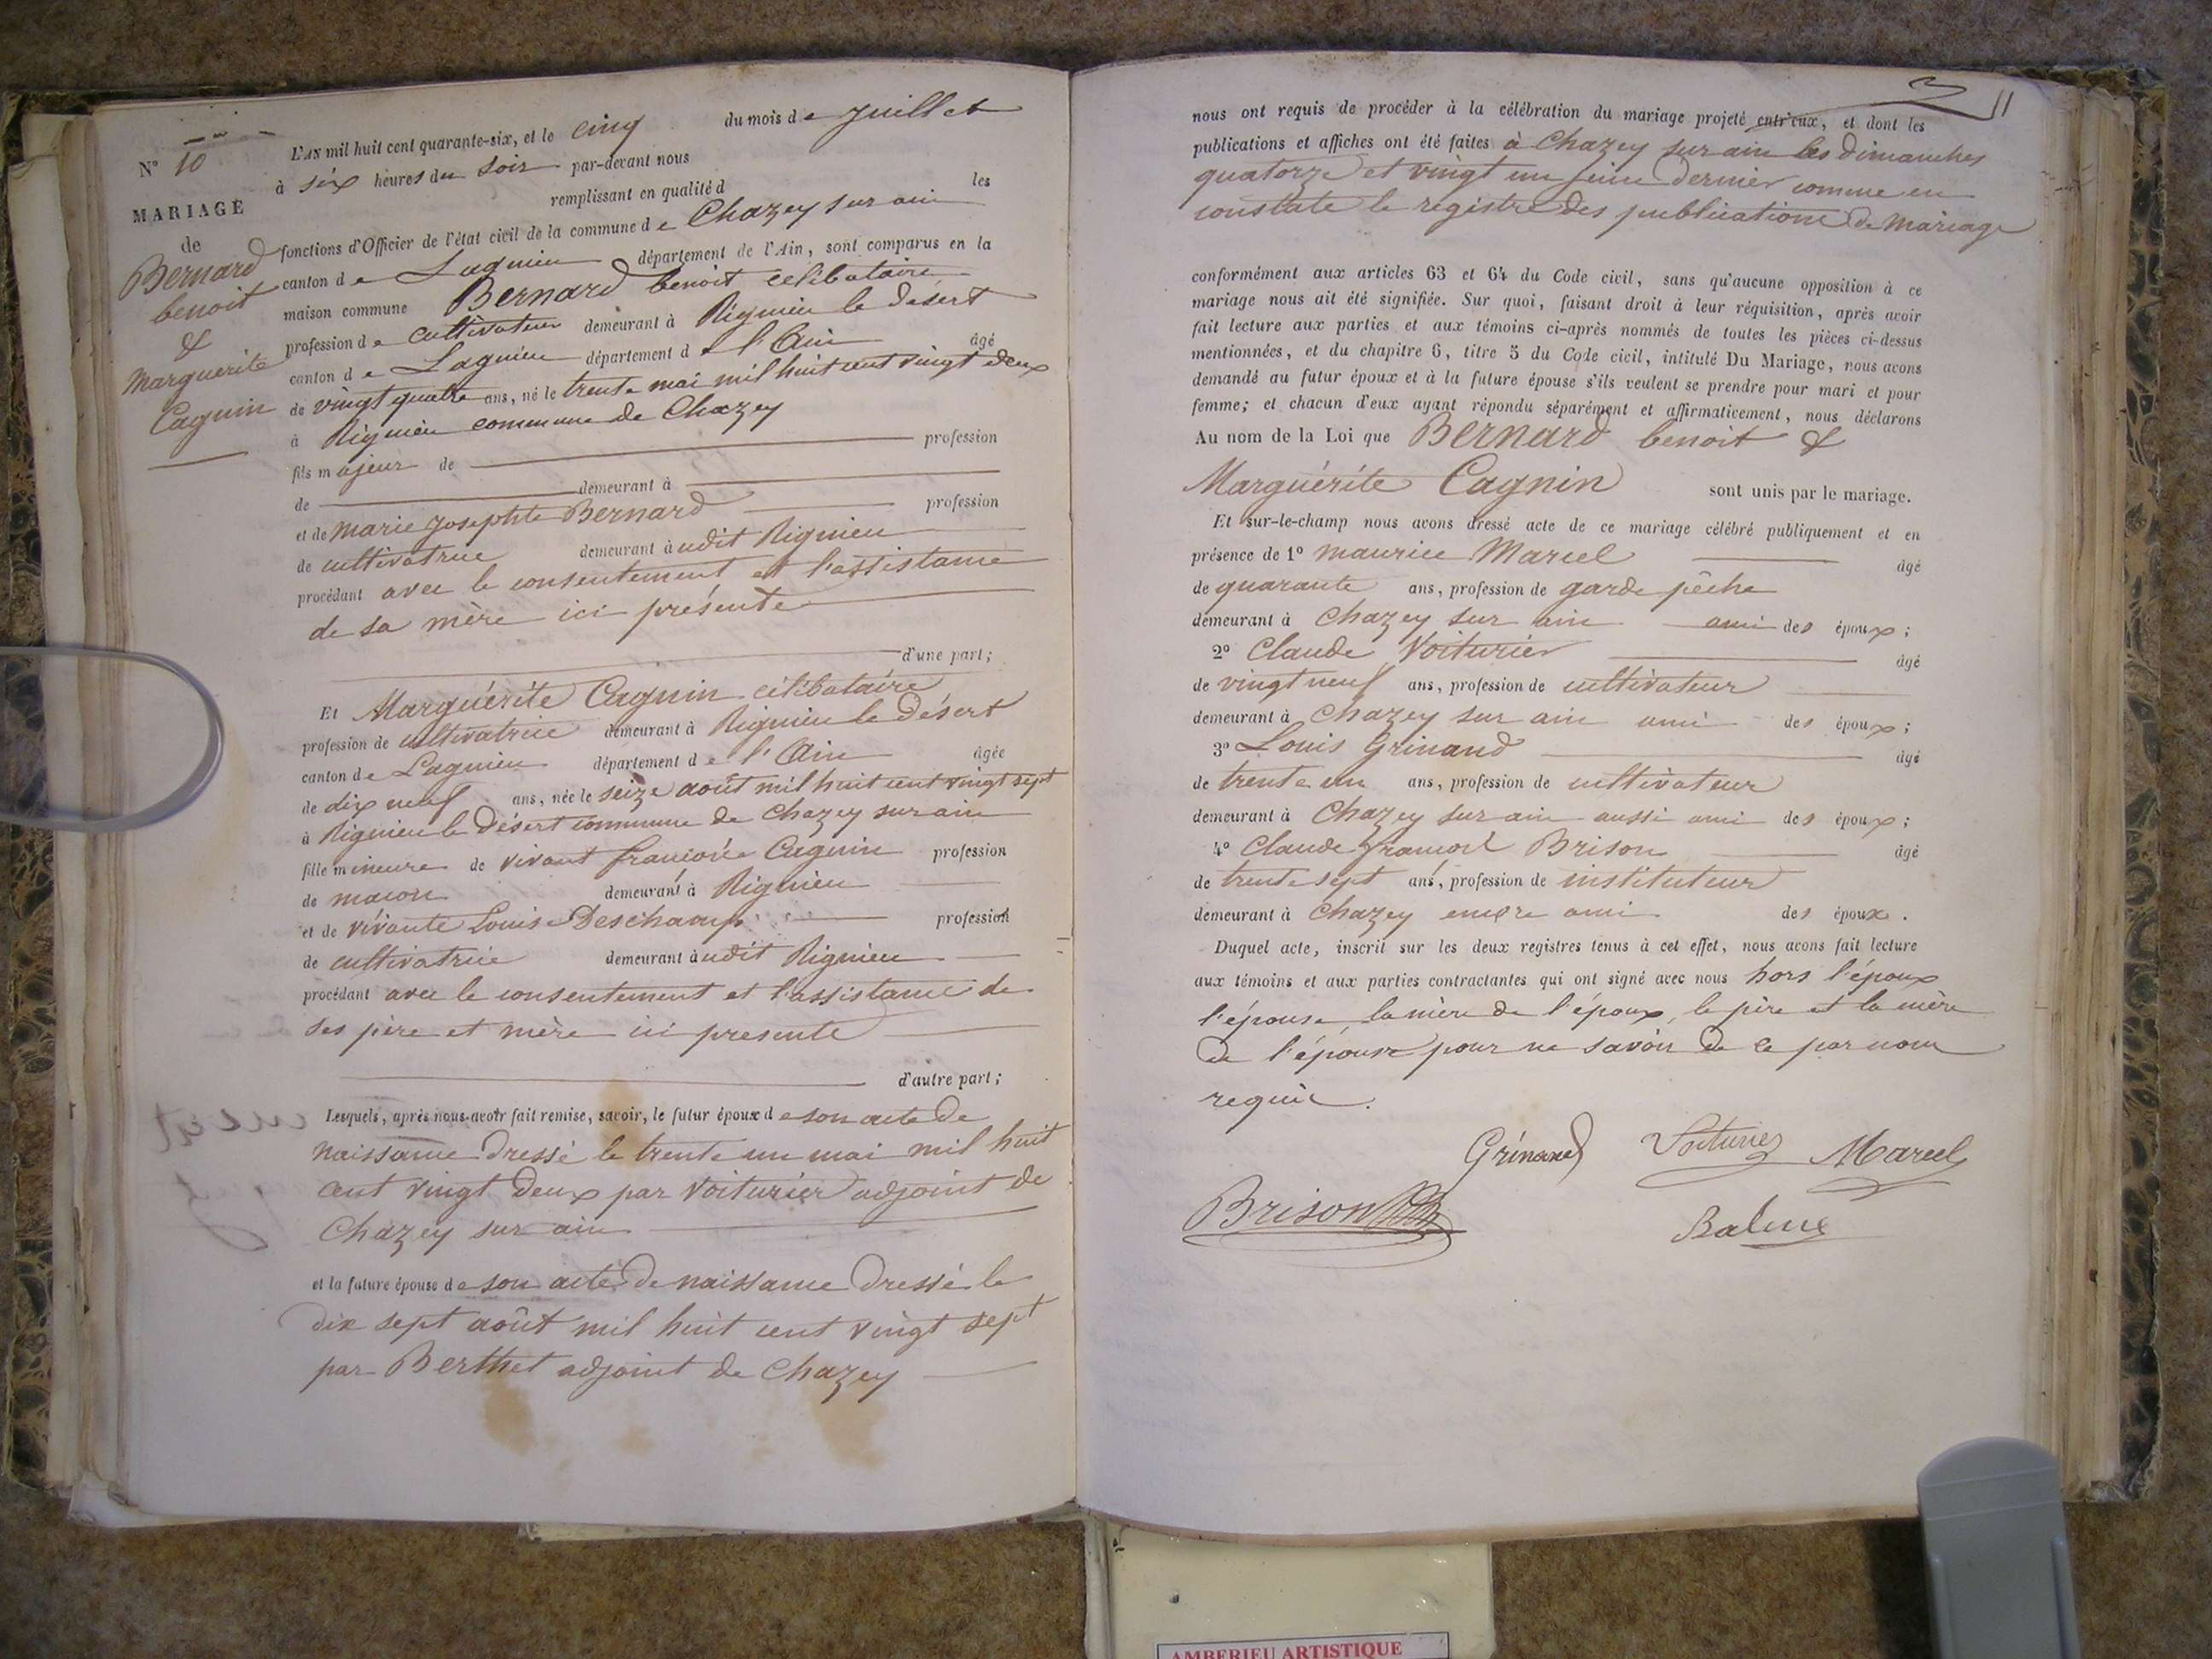 N° 10
MARIAGE
de
Bernard
benoit
&
Marguerite
Cagnin
L'AN mil huit cent quarante-six, et le cinq du mois de juillet
à six heures du soir par-devant nous
remplissant en qualité d les
fonctions d'Officier de l'état civil de la commune de Chazey sur ain
canton de Lagnieu département de l'Ain, sont comparus en la
maison commune Bernard benoit célibataire
profession de cultivateur demeurant à Rignieu le désert
canton de Lagnieu département de l'Ain âgé
de vingt quatre ans, né le trente mai mil huit cent vingt deux
à Rignieu commune de Chazey
fils majeur de profession
de demeurant à
et de marie josephte Bernard profession
de cultivatrice demeurant à udit Rignieu
procédant avec le consentement et l'assistance
de sa mère ici présente
d'une part;
Et Marguérite Cagnin célibataire
profession de cultivatrice demeurant à Rignieu le Désert
canton de Lagnieu département de l'Ain âgée
de dix neuf ans, née le seize août mil huit cent vingt sept
à Rignieu le Désert commune de Chazey sur ain
fille mineure de vivant françois Cagnin profession
de maçon demeurant à Rignieu
et de vivante Louise Deschamp profession
de cultivatrice demeurant à udit Rignieu
procédant avec le consentement et l'assistance de
ses père et mère ici présente
d'autre part;
Lesquels, après nous avoir fait remise, savoir, le futur époux de son acte de
naissance Dressé le trente un mai mil huit
cent vingt Deux par Voiturier adjoint de
Chazey sur ain
et la future épouse de son acte de naissance Dressé le
dix sept août mil huit cent vingt sept
par Berthet adjoint de Chazey
11
nous ont requis de procéder à la célébration du mariage projeté entr'eux, et dont les
publications et affiches ont été faites à Chazey sur ain les dimanches
quatorze et vingt un juin dernier comme en
constate le registre des publications de mariage
conformément aux articles 63 et 64 du Code civil, sans qu'aucune opposition à ce
mariage nous ait été signifiée. Sur quoi, faisant droit à leur réquisition, après avoir
fait lecture aux parties et aux témoins ci-après nommés de toutes les pièces ci-dessus
mentionnées, et du chapitre 6, titre 5 du Code civil, intitulé Du Mariage, nous avons
demandé au futur époux et à la future épouse s'ils veulent se prendre pour mari et pour
femme; et chacun d'eux ayant répondu séparément et affirmativement, nous déclarons
Au nom de la Loi que Bernard benoit &
Marguérite Cagnin sont unis par le mariage.
Et sur-le-champ nous avons dressé acte de ce mariage célébré publiquement et en
présence de 1° maurice Marcel âgé
de quarante ans, profession de garde pêche
demeurant à Chazey sur ain ami des époux;
2° Claude Voiturier âgé
de vingt neuf ans, profession de cultivateur
demeurant à Chazey sur ain ami des époux;
3° Louis Grinand âgé
de trente un ans, profession de cultivateur
demeurant à Chazey sur ain aussi ami des époux;
4° Claude françois Brison âgé
de trente sept ans, profession de instituteur
demeurant à Chazey encore ami des époux.
Duquel acte, inscrit sur les deux registres tenus à cet effet, nous avons fait lecture
aux témoins et aux parties contractantes qui ont signé avec nous hors l'époux
l'épouse, la mère de l'époux, le père et la mère
de l'épouse pour ne savoir de ce par nous
requis.
Grinand Voiturier Marcel
Brison Balme
AMBERIEU ARTISTIQUE